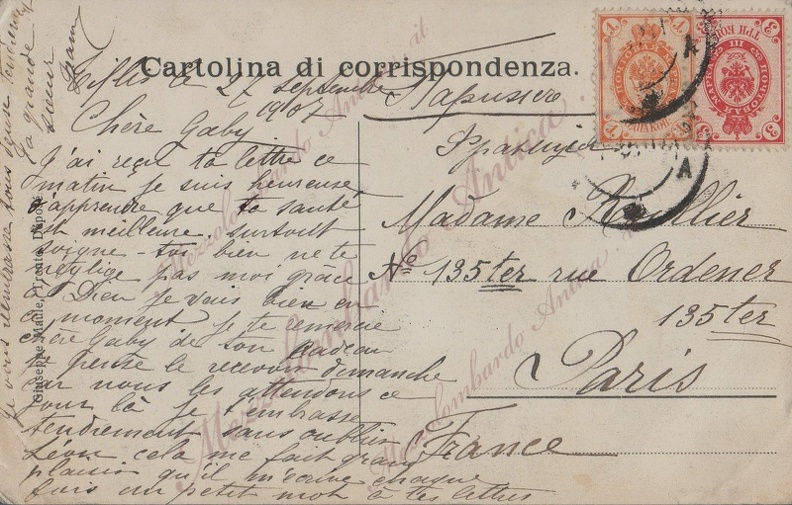 Cartolina di corrispondenza.
27 Septembre
1907
Chère Gaby
J'ai reçu ta lettre ce
matin je suis heureuse
d'apprendre que ta santé
est meilleure, surtout
soigne-toi bien ne te
néglige pas moi grâce
à Dieu je vais bien en
ce moment je te remercie
chère Gaby de ton cadeau
je pense le recevoir dimanche
car nous les attendons ce
jour là je t'embrasse
tendrement sans oublier
Léon cela me fait grand
plaisir qu'il m'écrive chaque
fois un petit mot à tes lettres
je vous embrasse tous deux
ta grande
sœur
Парижъ
Франція
Madame
No 135ter rue Ordener
135ter
Paris
France
Giuseppe Maule, Trento, Depos.
Mezzolombardo Antica
Mezzolombardo Antica
Mezzolombardo Antica
.it
1
1
1
ТРИ КОП
3
3
A
A